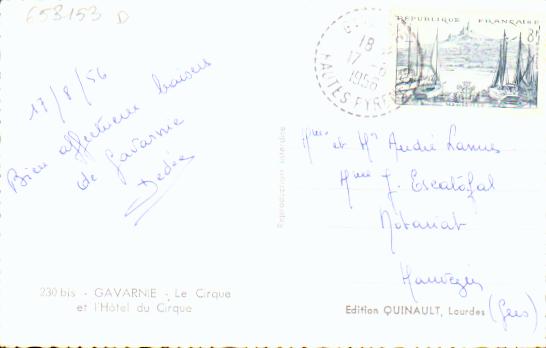 653153 D
17/8/56
Bien affectueux baisers
de Gavarnie
Dédée
230 bis - GAVARNIE - Le Cirque
et l'Hôtel du Cirque
Reproduction interdite
18
17-8
1956
HAUTES PYRE
REPUBLIQUE FRANÇAISE
8F
et Mr André Lannes
Mme J. Escatafal
Notariat
(Gers)
Edition QUINAULT, Lourdes